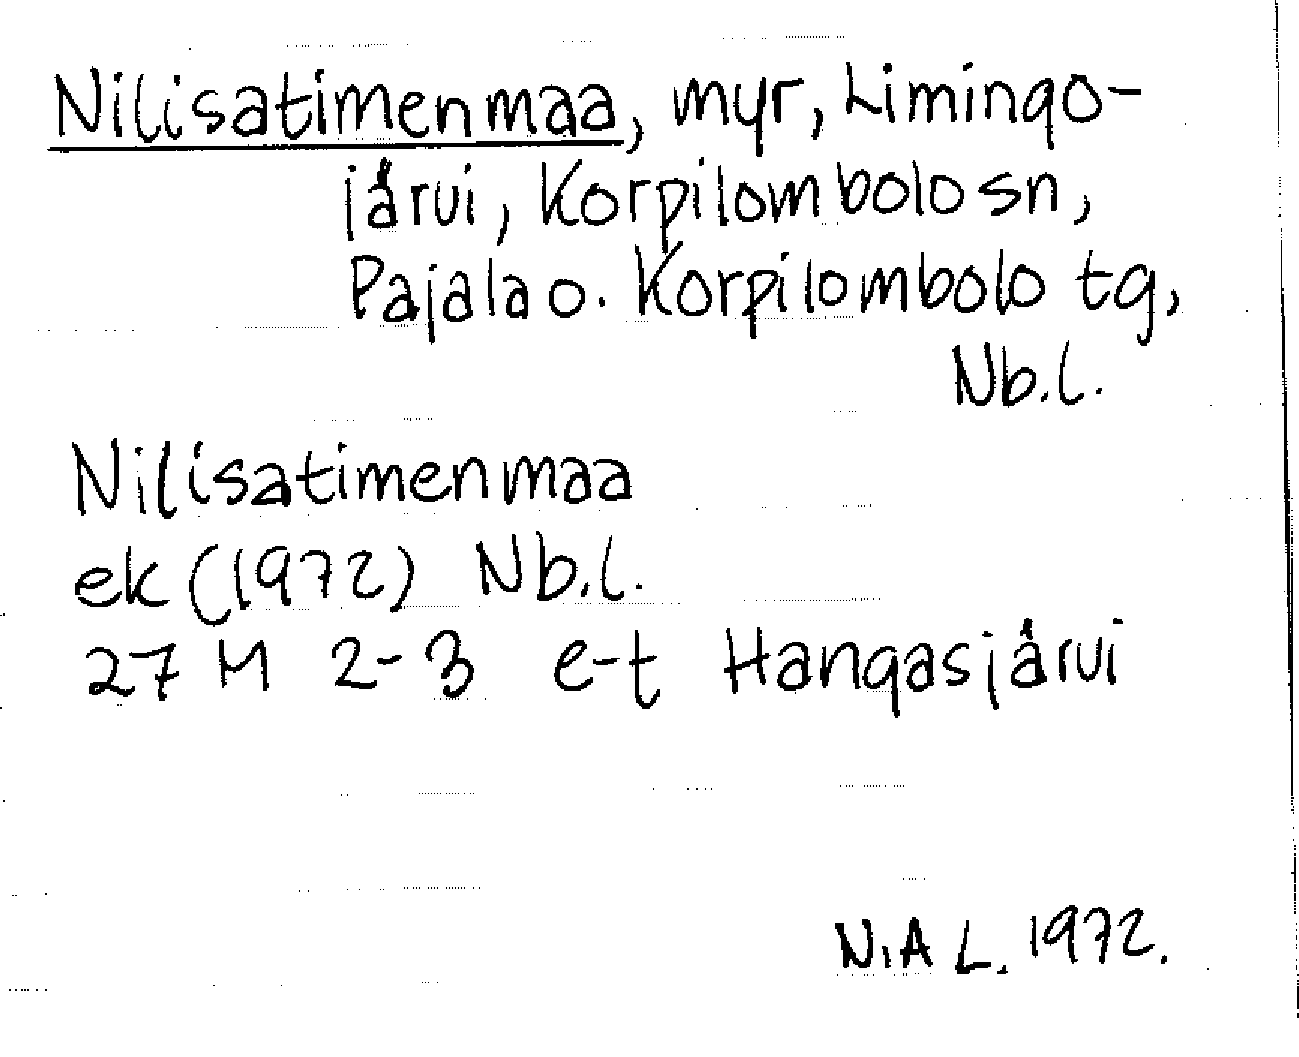 Nilisatimenmaa, myr, Limingo-
järvi, Korpilombolo sn,
Pajala o. Korpilombolo tg,
Nb.l.
Nilisatimenmaa
ek (1972) Nb.l.
27 M 2-3 e-t Hangasjärvi
N.A L. 1972.